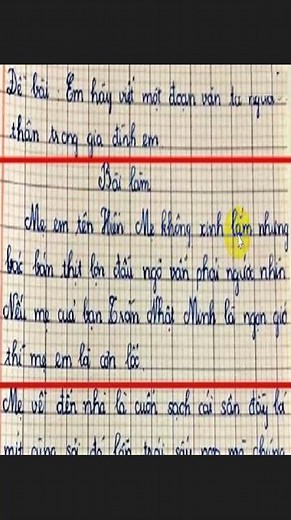 Đề bài: Em hãy viết một đoạn văn tả người
thân trong gia đình em
Bài làm
Mẹ em tên Hiền Mẹ không xinh lắm nhưng
bác bán thịt lợn đầu ngõ vẫn phải ngước nhìn
Nếu mẹ của bạn Trần Nhật Minh là ngọn gió
thì mẹ em là cơn lốc.
Mẹ về đến nhà là cuốn sạch cái sân đầy lá
mít cùng sỏi đá lẫn trái sấu non mà chúng